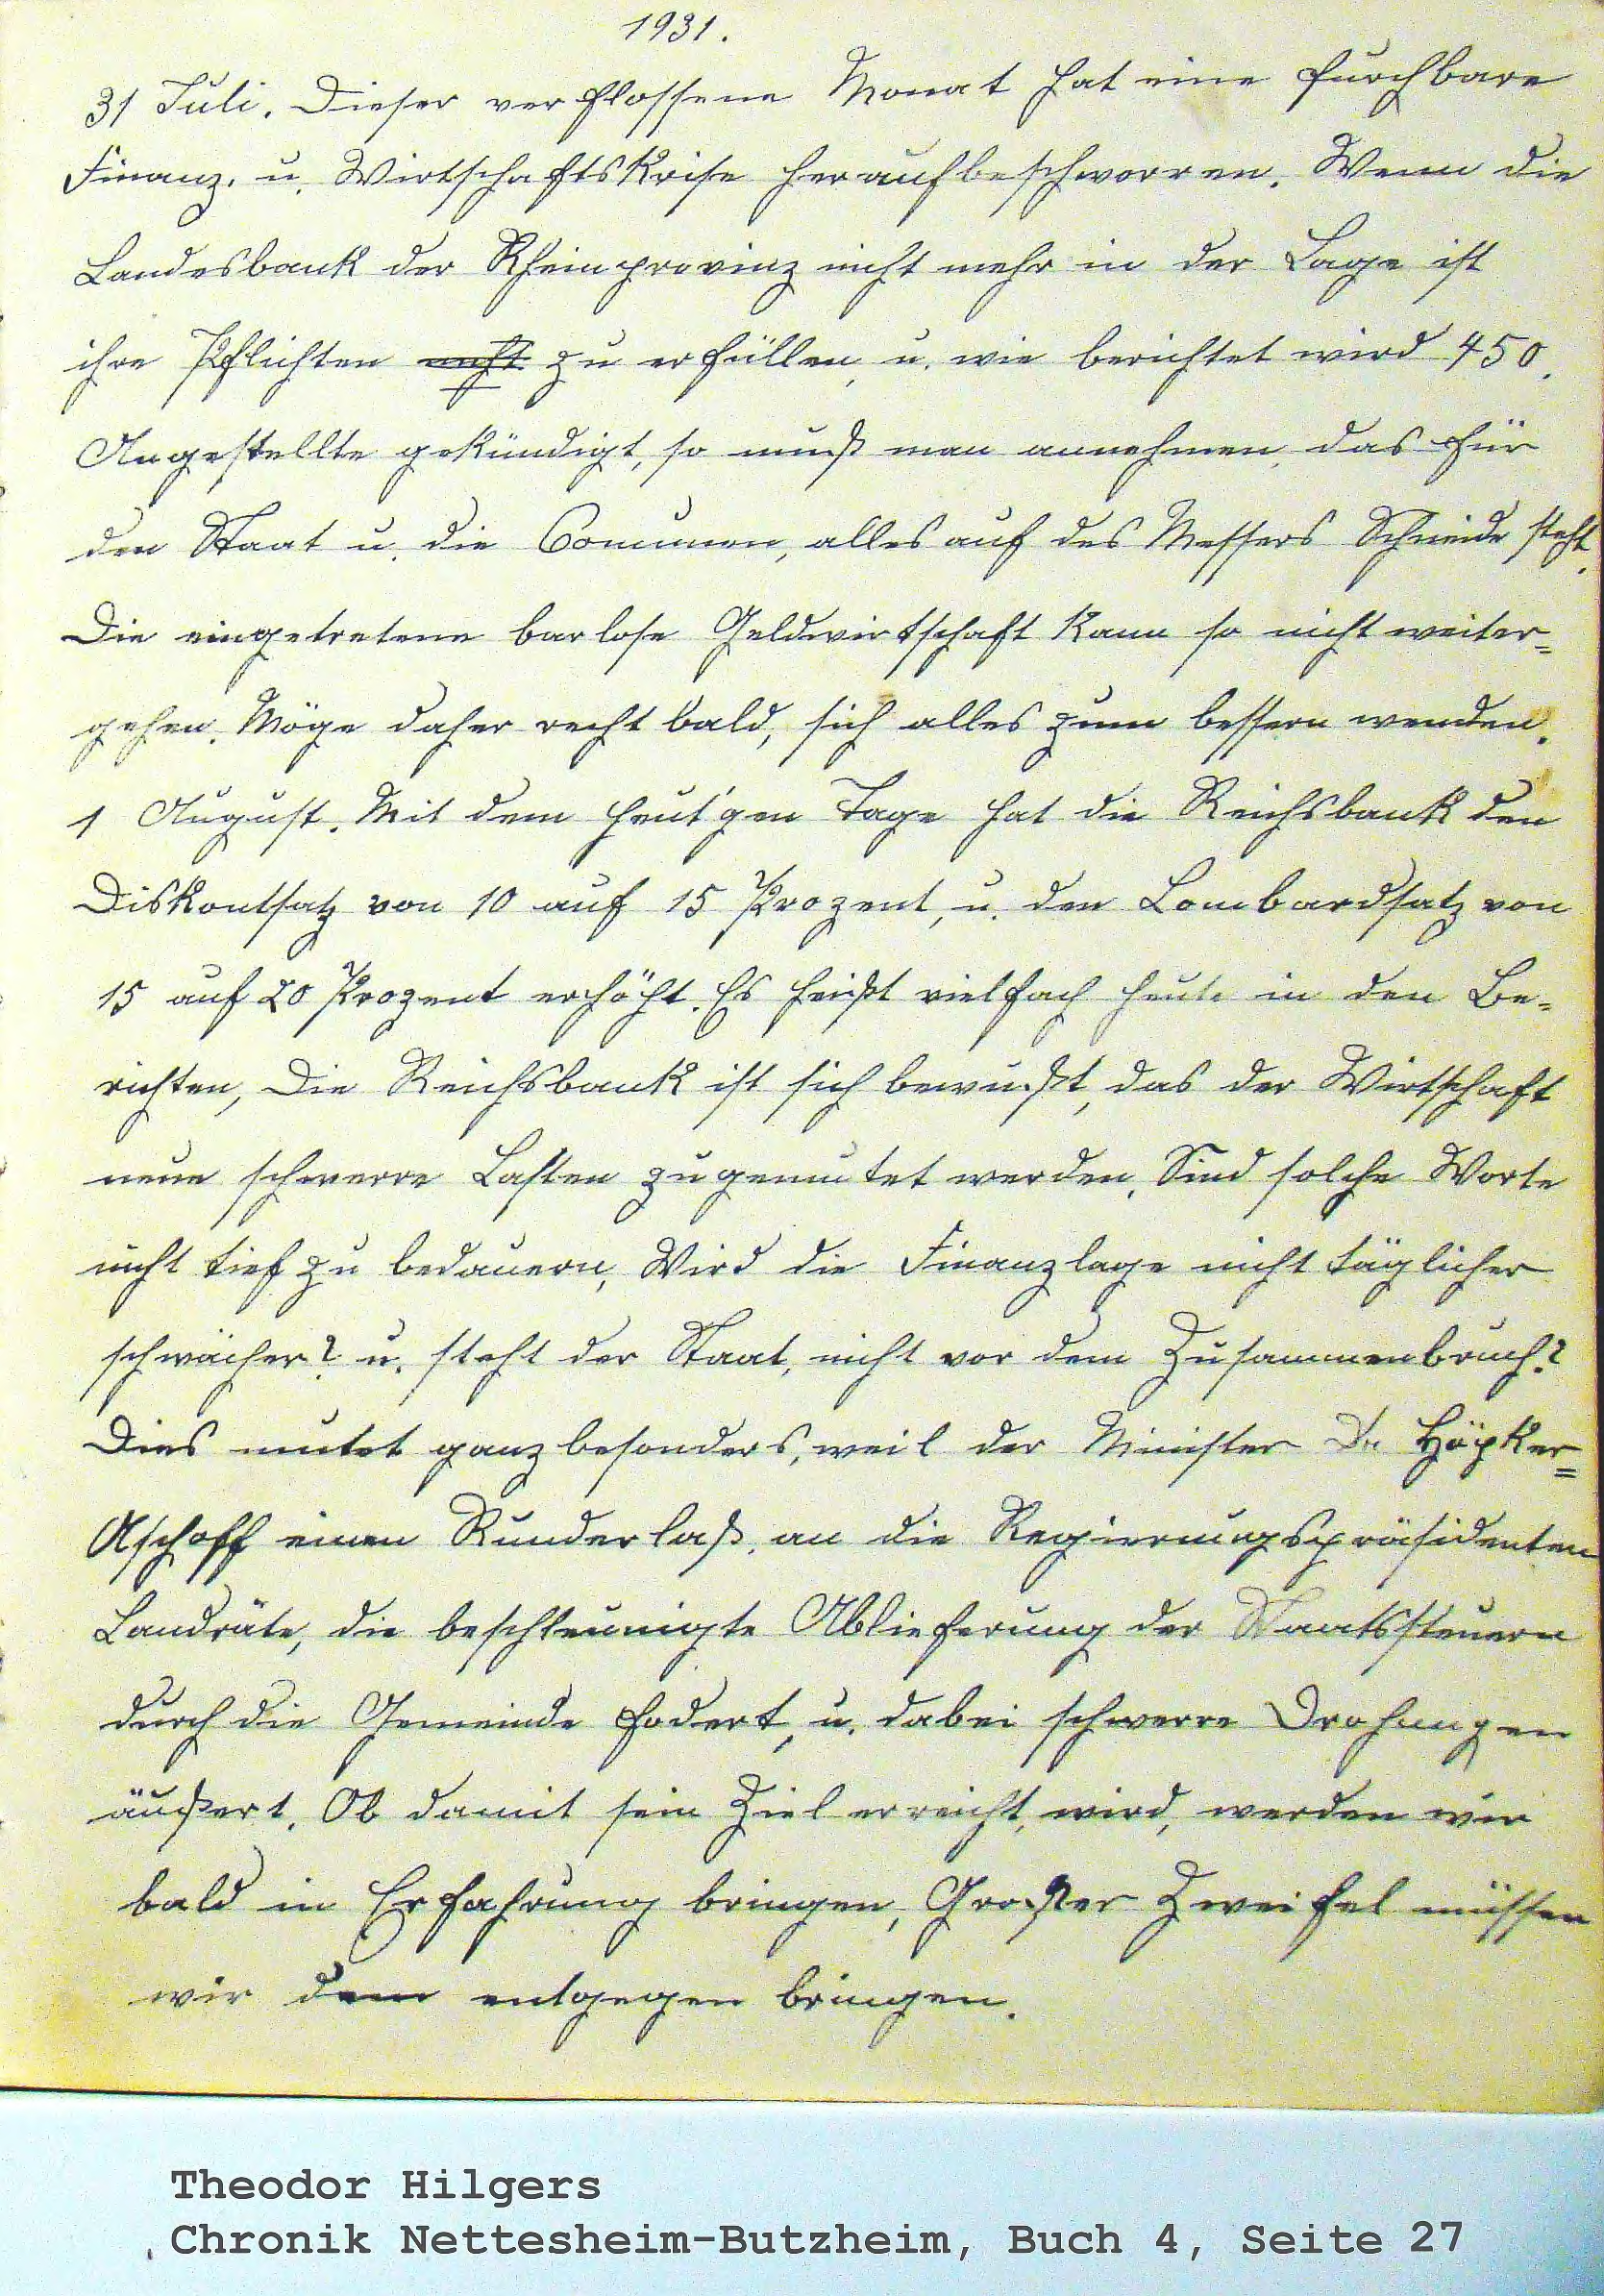 1931.
31 Juli. Dieser verflossene Monat hat eine furchbare
Finanz. u. Wirtschaftskrise heraufbeschworren. Wenn die
Landesbank der Rheinprovinz nicht mehr in der Lage ist
ihre Pflichten nicht zu erfüllen, u. wie berichtet wird 450.
Angestellte gekündigt, so muß man annehmen, das für
den Staat u. die Comunen, alles auf des Messers Schneide steht.
Die eingetretene barlose Geldwirtschaft kann so nicht weiter=
gehen. Möge daher recht bald, sich alles zum bessern wenden.
1 August. Mit dem heut'gen Tage hat die Reichsbank den
Diskontsatz von 10 auf 15 Prozent, u. den Lombardsatz von
15 auf 20 Prozent erhöht. Es heißt vielfach heute in den Be=
richten, Die Reichsbank ist sich bewußt, das der Wirtschaft
neue schwerre Lasten zugemutet werden. Sind solche Worte
nicht tief zu bedauern, Wird die Finanzlage nicht täglicher
schwächer? u. steht der Staat, nicht vor dem Zusammenbruch?
Dies mutet ganz besonders, weil der Minister Dr Höpker=
Aschoff einen Runderlaß, an die Regierungspräsidenten
Landräte, die beschleunigte Ablieferung der Staatssteuern
durch die Gemeinde fodert, u. dabei schwerre Drohungen
äußert. Ob damit sein Ziel erreicht, wird, werden wir
bald in Erfahrung bringen, Großer Zweifel müssen
wir dem entgegen bringen.
Theodor Hilgers
Chronik Nettesheim-Butzheim, Buch 4, Seite 27